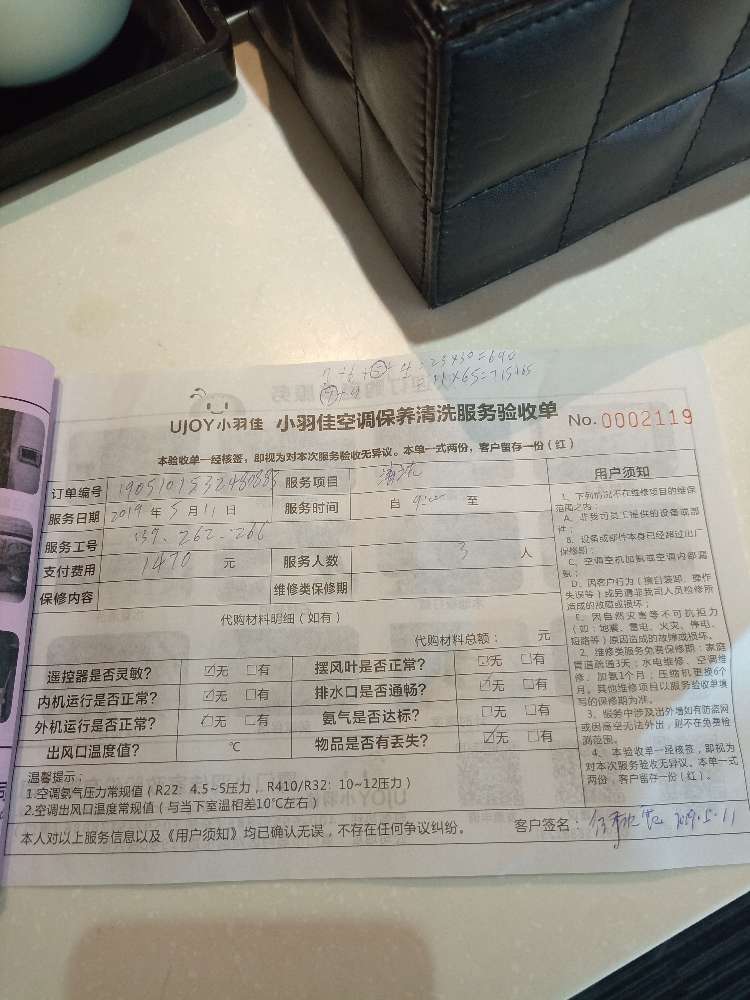 23×30=690
11×65=715
UJOY小羽佳 小羽佳空调保养清洗服务验收单 No.0002119
本验收单一经核签，即视为对本次服务验收无异议。本单一式两份，客户留存一份（红）
订单编号 服务项目 清洗
服务日期 2019 年 5 月 11 日 服务时间 自 9:00 至
服务工号 139、262、266
支付费用 1470 元 服务人数 3 人
保修内容 维修类保修期
代购材料明细（如有）
代购材料总额： 元
遥控器是否灵敏？ ☑无 □有 摆风叶是否正常？ ☑无 □有
内机运行是否正常？ ☑无 □有 排水口是否通畅？ ☑无 □有
外机运行是否正常？ ☑无 □有 氨气是否达标？ □无 □有
出风口温度值？ ℃ 物品是否有丢失？ ☑无 □有
温馨提示：
1.空调氨气压力常规值（R22：4.5~5压力，R410/R32：10~12压力）
2.空调出风口温度常规值（与当下室温相差10℃左右）
本人对以上服务信息以及《用户须知》均已确认无误，不存在任何争议纠纷。 客户签名： 2019.5.11
用户须知
1、下列情况不在维修项目的维保
范围之内：
A、非我司员工提供的设备或部
件；
B、设备或部件本身已经超过出厂
保修期；
C、空调空机加氨或空调内部漏
氨；
D、因客户行为（擅自装卸、操作
失误等）或另遭非我司人员检修所
造成的故障或损坏；
E、因自然灾害等不可抗拒力
（如：地震、雷电、火灾、停电、
短路等）原因造成的故障或损坏。
2、维修类服务免费保修期：家庭
管道疏通3天；水电维修、空调维
修、加氨1个月；压缩机更换6个
月。其他维修项目以服务验收单填
写的保修期为准。
3、服务中涉及出外墙如有防盗网
或因高空无法外出，则不在免费检
测范围。
4、本验收单一经核签，即视为
对本次服务验收无异议。本单一式
两份，客户留存一份（红）。